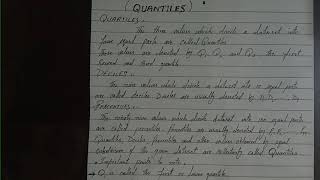 (QUANTILES)
QUARTILES.
The three values which divide a dataset into
four equal parts are called Quartiles
These values are denoted by Q1, Q2 and Q3 the first
Second and third
DECILES
The nine values which divide a dataset into equal parts
are called deciles Deciles are usually denoted by D1 D2
The ninety nine values which divide dataset into equal parts
are called percentiles are usually denoted by P1 P2
Quartiles, Deciles, percentiles and other values obtained by equal
of the given dataset are called Quantiles
Important points to note
Q1 is called the first or lower quartile